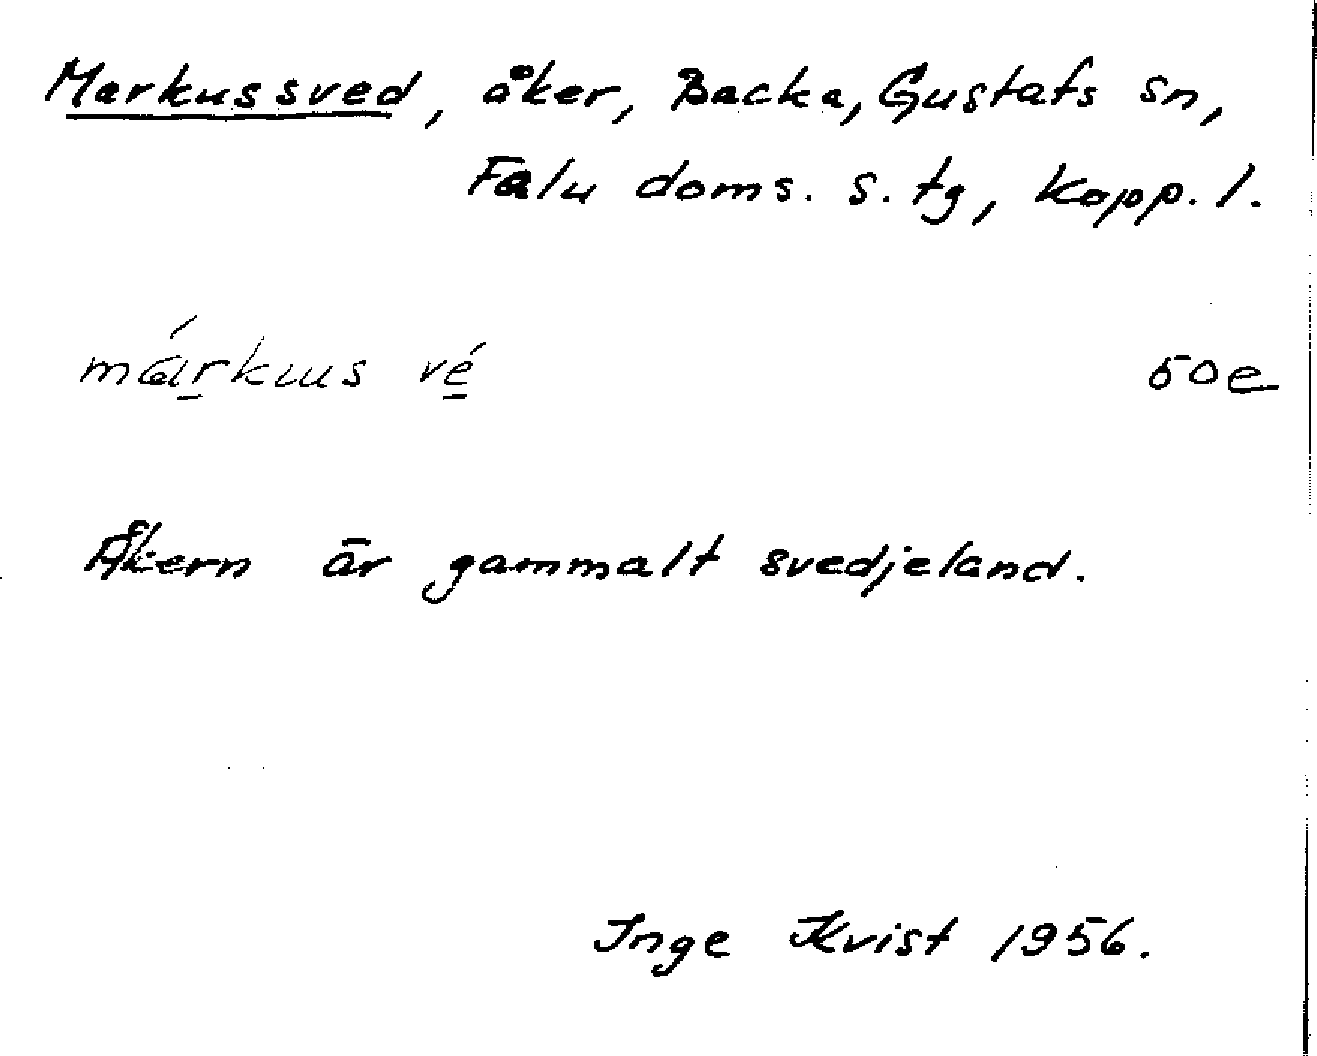 Markussved, åker, Backa, Gustafs sn,
Falu doms. s. tg, Kopp. l.
márkus vé 50e
Åkern är gammalt svedjeland.
Inge Kvist 1956.